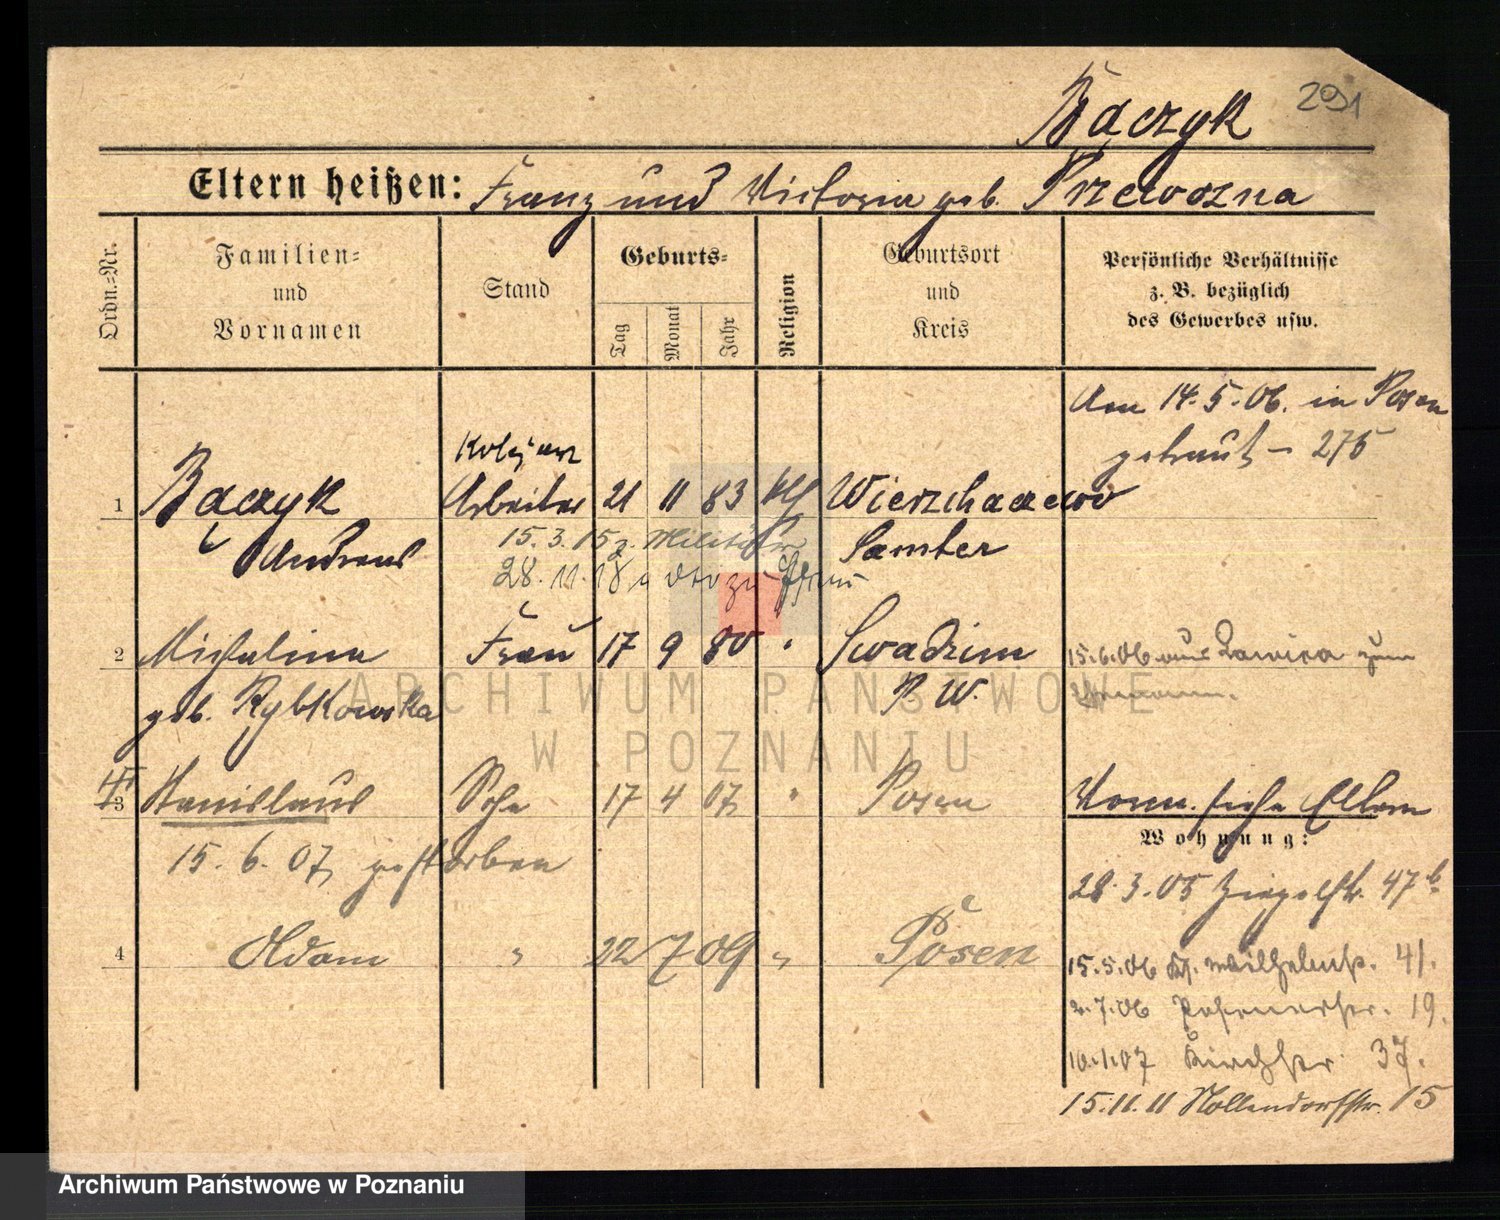 Bączyk 291
Eltern heißen: Franz und Victoria geb. Przewozna
Ordn.=Nr.
Familien= und Vornamen
Stand
Geburts=
Tag
Monat
Jahr
Religion
Geburtsort und Kreis
Persönliche Verhältnisse z. B. bezüglich des Gewerbes usw.
Am 14.5.06. in Posen
getraut - 276
1 Bączyk Arbeiter 21 11 83 kth Wierzchaczewo
Andreas Samter
15.3.15 z. Militär
28.11.18
2 Michalina Frau 17 9 80 " Swadzim
15.6.06 aus Lawica zum
geb. Rybkowska P. W.
3 Stanislaus Sohn 17 4 07 " Posen
siehe Eltern
15.6.07 gestorben
Wohnung:
28.3.05 Ziegelstr. 47 b.
4 Adam " 22 7 09 " Posen
15.5.06 Ks. Wilhelmstr. 41.
2.7.06 Posenerstr. 19.
10.1.07 Kirchstr. 37.
15.11.11 Nollendorfstr. 15
ARCHIWUM PAŃSTWOWE
W POZNANIU
Archiwum Państwowe w Poznaniu